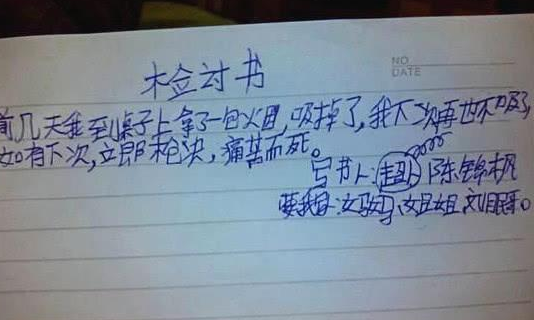 NO
DATE
检讨书
前几天我到桌子上拿了一包烟,吸掉了,我下次再也不吸了,
如有下次,立即枪决,痛苦而死。
写书人: 陈锦
要我写:妈妈、姐姐